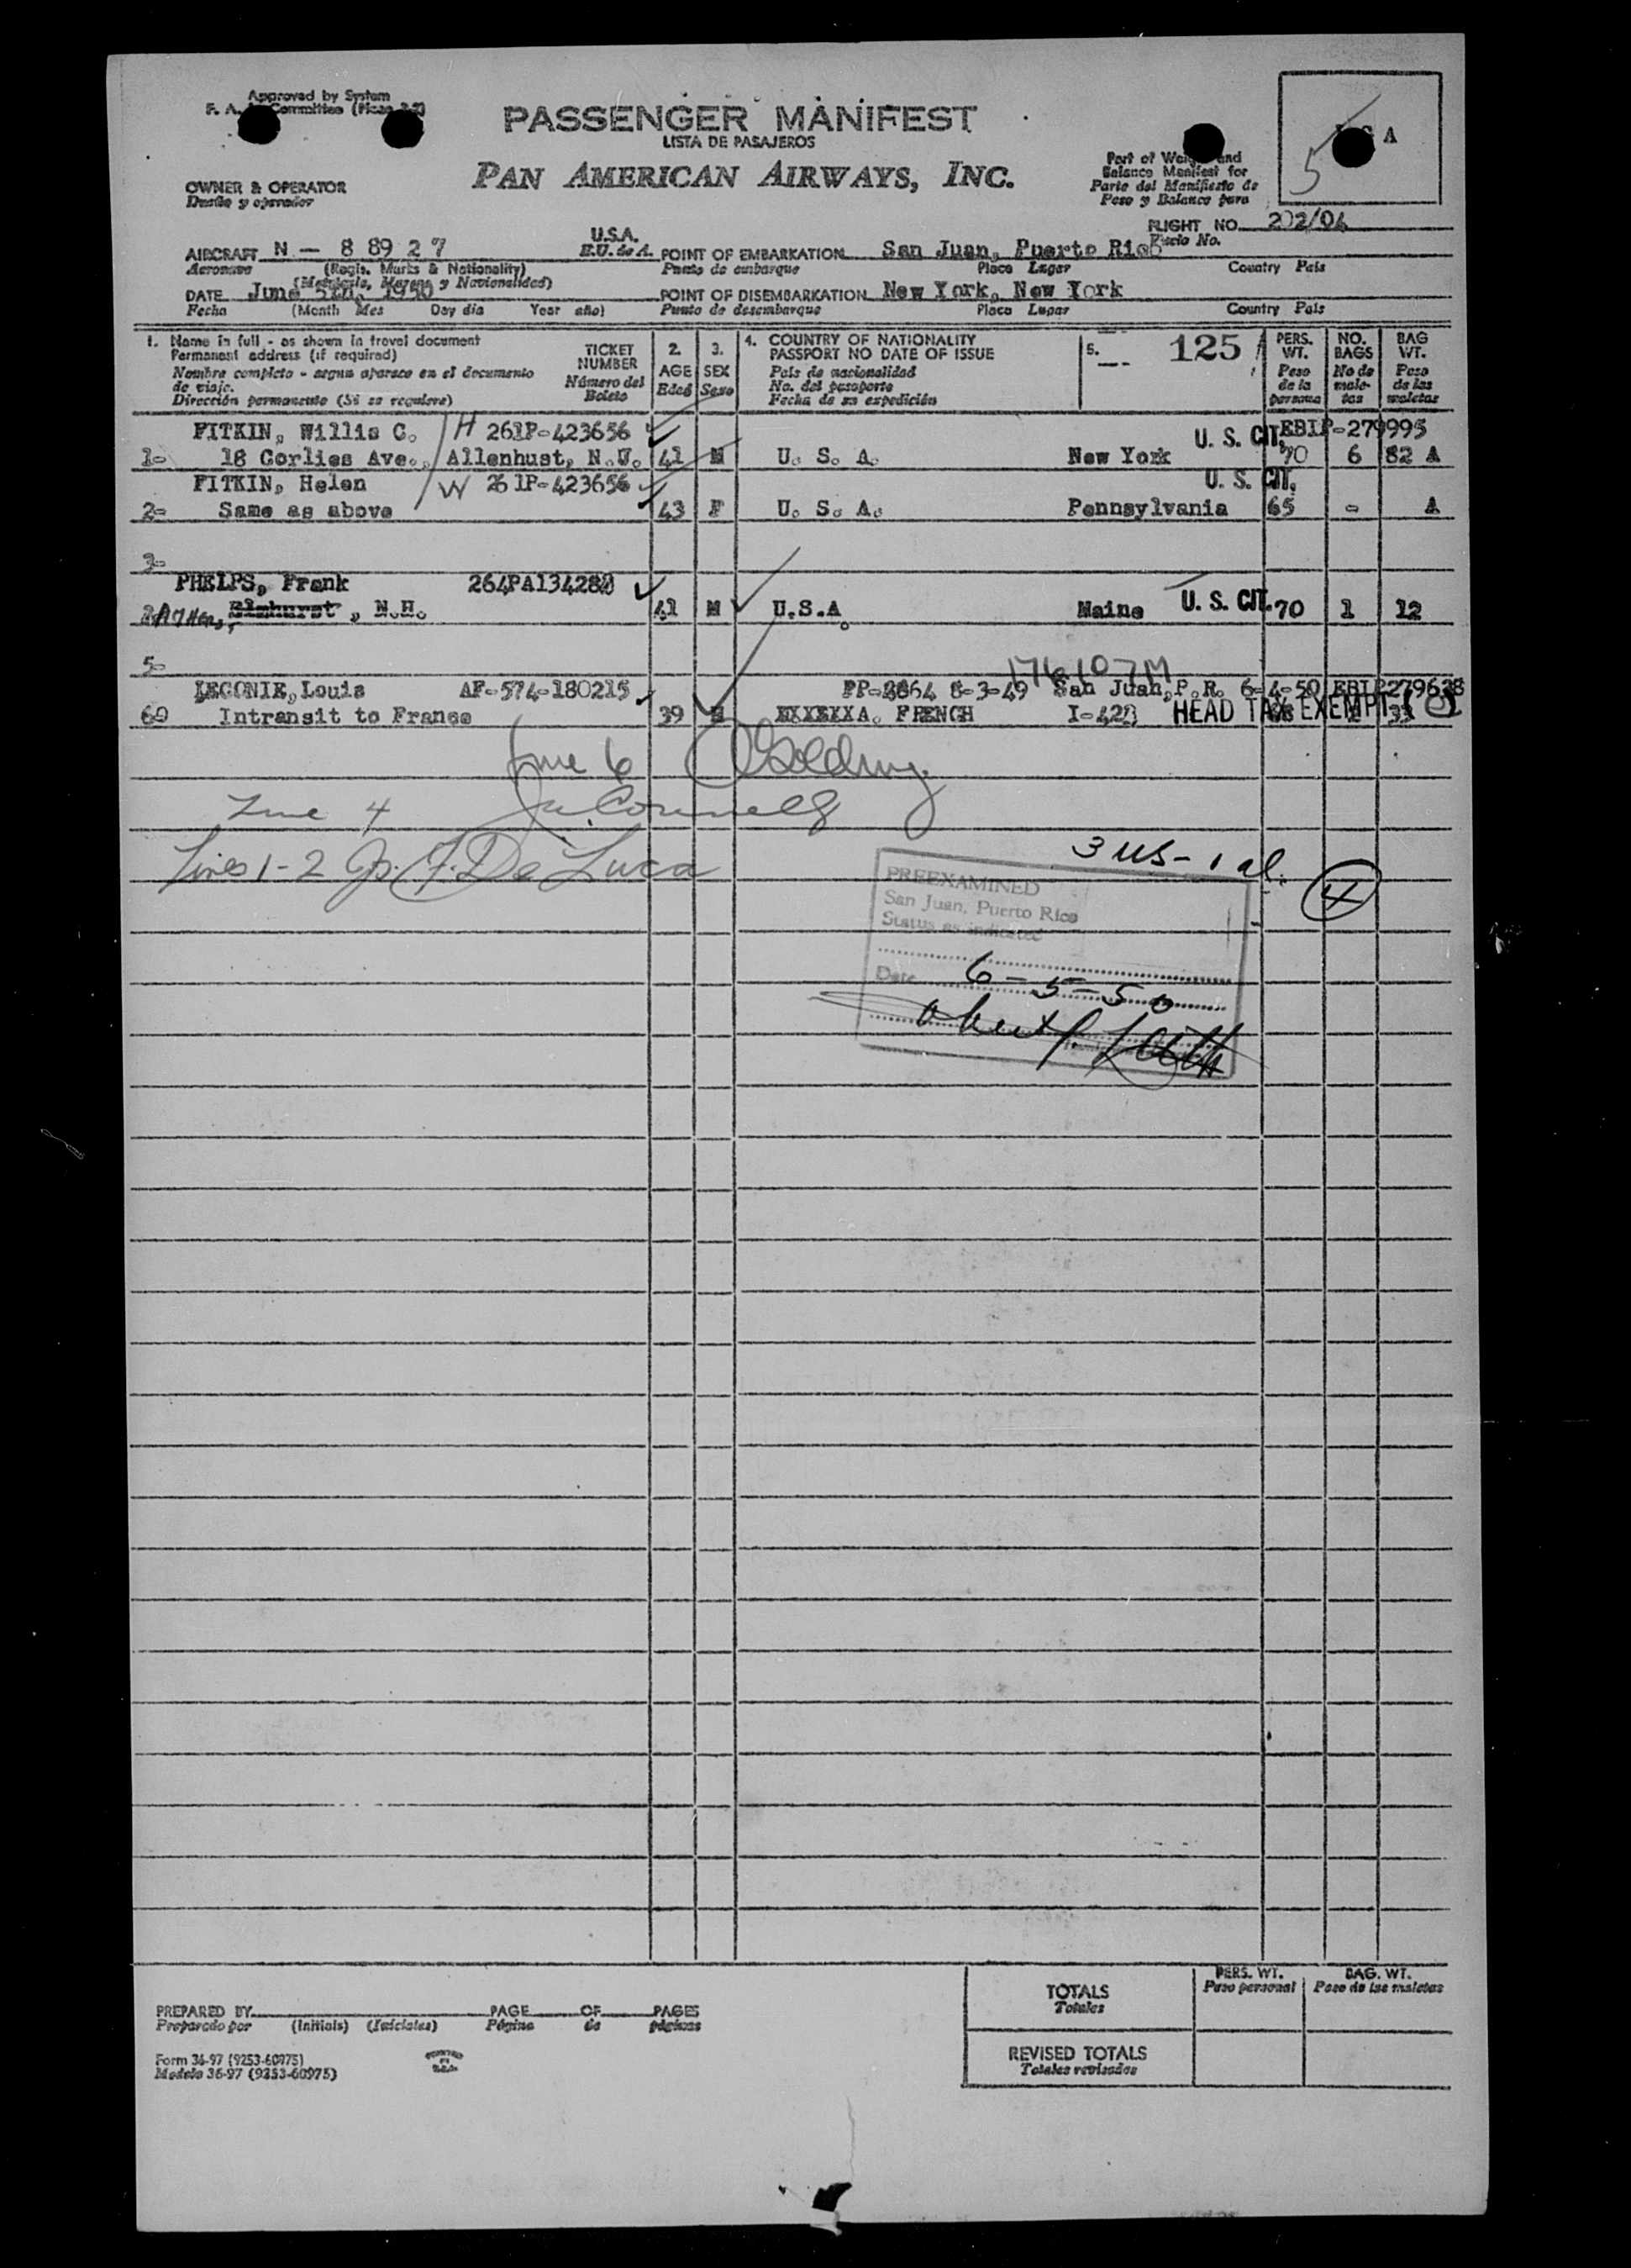 Approved by System
PASSENGER MANIFEST
LISTA DE PASAJEROS
PAN AMERICAN AIRWAYS, INC.
Part of Weight and
Balance Manifest for
Parte del Manifiesto de
Peso y Balance para
5 A
OWNER & OPERATOR
Dueño y operador
FLIGHT NO. 202/04
Vuelo No.
AIRCRAFT N - 8 89 2 7 U.S.A. POINT OF EMBARKATION San Juan, Puerto Rico
Aeronave (Regis. Marks & Nationality) E.U. de A. Punto de embarque Place Lugar Country País
(Matrícula, Marcas y Nacionalidad)
DATE June 5th, 1950 POINT OF DISEMBARKATION New York, New York
Fecha (Month Mes Day día Year año) Punto de desembarque Place Lugar Country País
1. Name in full - as shown in travel document
Permanent address (if required)
Nombre completo - segun aparece en el documento
de viaje.
Dirección permanente (Si se requiere)
TICKET
NUMBER
Número del
Boleto
2.
AGE
Edad
3.
SEX
Sexo
4. COUNTRY OF NATIONALITY
PASSPORT NO DATE OF ISSUE
País de nacionalidad
No. del pasaporte
Fecha de su expedición
5. 125
PERS.
WT.
Peso
de la
persona
NO.
BAGS
No de
male-
tas
BAG
WT.
Peso
de las
maletas
FITKIN, Willis C. H 261P-423656 U. S. CIT. EBIP-279995
1- 18 Corlies Ave., Allenhust, N.J. 41 M U. S. A. New York 70 6 82 A
FITKIN, Helen W 261P-423656 U. S. CIT.
2- Same as above 43 F U. S. A. Pennsylvania 65 - A
3-
PHELPS, Frank
Elmhurst, N.H. 41 M U.S.A. Maine U. S. CIT. 70 1 12
5-
176107M
LECONIE, Louis AF-574-180215 San Juan, P.R. 6-4-50 EBIP279638
Intransit to France 39 FRENCH HEAD TAX EXEMPT
Line 6
Line 4
Lines 1-2 F. De Luca
3 US - 1 al.
4
PREEXAMINED
San Juan, Puerto Rico
Status as indicated
Date 6-5-50
PREPARED BY PAGE OF PAGES
Preparado por (Initials) (Iniciales) Página de páginas
Form 36-97 (9253-60975)
Modelo 36-97 (9253-60975)
PERS. WT.
Peso personal
BAG. WT.
Peso de las maletas
TOTALS
Totales
REVISED TOTALS
Totales revisados